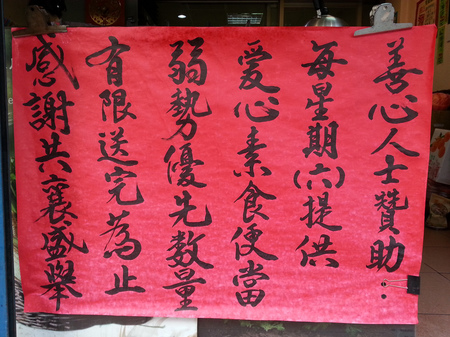 善心人士贊助：
每星期(六)提供
愛心素食便當
弱勢優先數量
有限送完為止
感謝共襄盛舉